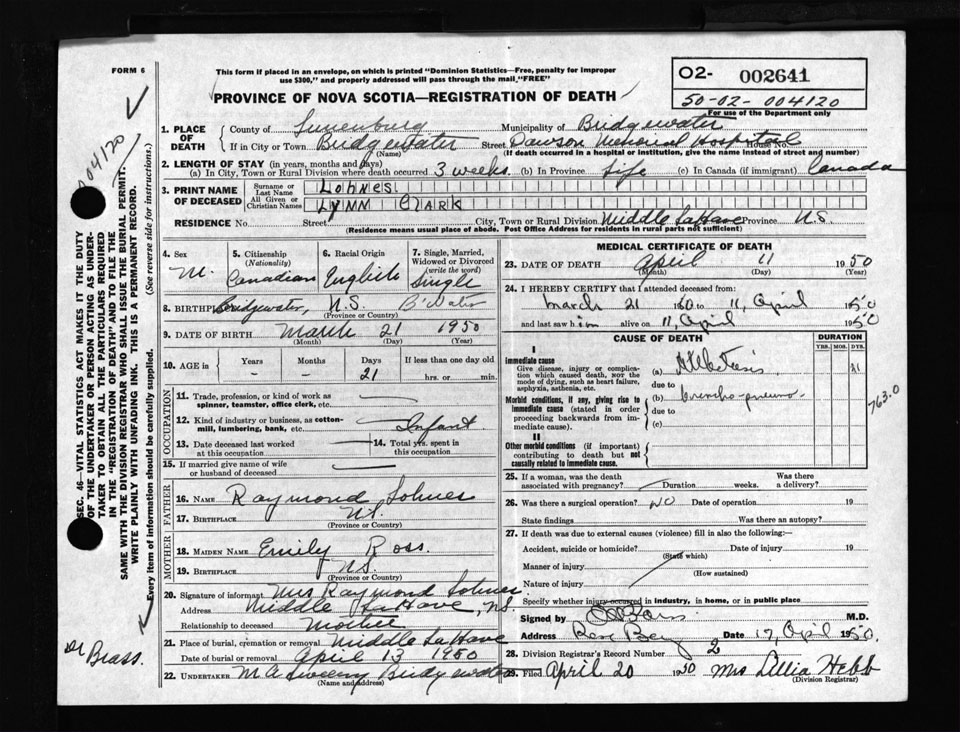 FORM 6
This form if placed in an envelope, on which is printed "Dominion Statistics—Free, penalty for improper
use $300," and properly addressed will pass through the mail "FREE"
PROVINCE OF NOVA SCOTIA—REGISTRATION OF DEATH
O2- 002641
50-02-004120
For use of the Department only
004120
SEC. 46—VITAL STATISTICS ACT MAKES IT THE DUTY
OF THE UNDERTAKER OR PERSON ACTING AS UNDER-
TAKER TO OBTAIN ALL THE PARTICULARS REQUIRED
IN THE "REGISTRATION OF DEATH" AND TO FILE THE
SAME WITH THE DIVISION REGISTRAR WHO SHALL ISSUE THE BURIAL PERMIT.
WRITE PLAINLY WITH UNFADING INK. THIS IS A PERMANENT RECORD.
Every item of information should be carefully supplied. (See reverse side for instructions.)
1. PLACE OF DEATH
County of Lunenburg Municipality of Bridgewater
If in City or Town Bridgewater Street Dawson Memorial Hospital House No.
(Name) (If death occurred in a hospital or institution, give the name instead of street and number)
2. LENGTH OF STAY (in years, months and days)
(a) In City, Town or Rural Division where death occurred 3 weeks. (b) In Province Life (c) In Canada (if immigrant) Canada
3. PRINT NAME OF DECEASED
Surname or Last Name Lohnes
All Given or Christian Names Lynn Clark
RESIDENCE No. Street City, Town or Rural Division Middle LaHave Province N.S.
(Residence means usual place of abode. Post Office Address for residents in rural parts not sufficient)
4. Sex M.
5. Citizenship (Nationality) Canadian
6. Racial Origin English
7. Single, Married, Widowed or Divorced (write the word) Single
8. BIRTHPLACE Bridgewater, N.S. B'Water
(Province or Country)
9. DATE OF BIRTH March 21 1950
(Month) (Day) (Year)
10. AGE in Years Months Days If less than one day old
- - 21 hrs. or min.
OCCUPATION
11. Trade, profession, or kind of work as
spinner, teamster, office clerk, etc.
12. Kind of industry or business, as cotton-
mill, lumbering, bank, etc. Infant
13. Date deceased last worked
at this occupation
14. Total yrs. spent in
this occupation
15. If married give name of wife
or husband of deceased
FATHER
16. NAME Raymond Lohnes
17. BIRTHPLACE N.S.
(Province or Country)
MOTHER
18. MAIDEN NAME Emily Ross.
19. BIRTHPLACE N.S.
(Province or Country)
20. Signature of informant Mrs Raymond Lohnes
Address Middle LaHave, N.S.
Relationship to deceased Mother
21. Place of burial, cremation or removal Middle LaHave
Date of burial or removal April 13 1950
22. UNDERTAKER M A Sweeny Bridgewater
(Name and address)
MEDICAL CERTIFICATE OF DEATH
23. DATE OF DEATH April 11 1950
(Month) (Day) (Year)
24. I HEREBY CERTIFY that I attended deceased from:
March 21 to 11, April 1950
and last saw him alive on 11, April 1950
CAUSE OF DEATH
DURATION
YRS. MOS. DYS.
I
Immediate cause
Give disease, injury or complica-
tion which caused death, NOT the
mode of dying, such as heart failure,
asphyxia, asthenia, etc.
(a) Atelectasis 21
due to
Morbid conditions, if any, giving rise to
immediate cause (stated in order
proceeding backwards from im-
mediate cause).
(b) broncho-pneumo-
due to
(c)
763.0
II
Other morbid conditions (if important)
contributing to death but not
causally related to immediate cause.
25. If a woman, was the death
associated with pregnancy? Duration weeks. Was there
a delivery?
26. Was there a surgical operation? NO Date of operation 19
State findings Was there an autopsy?
27. If death was due to external causes (violence) fill in also the following:
Accident, suicide or homicide? Date of injury 19
(State which)
Manner of injury
(How sustained)
Nature of injury
Specify whether injury occurred in industry, in home, or in public place
Signed by M.D.
Address Rose Bay Date 17, April 1950.
28. Division Registrar's Record Number 2
29. Filed April 20 1950 Mrs Lillia Hebb
(Division Registrar)
Dr Brass.